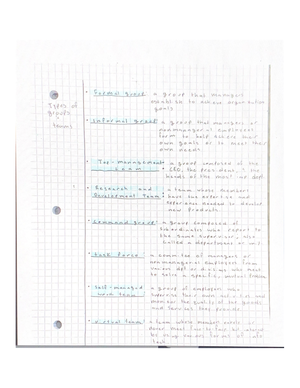 Types of
groups
+
teams
• Formal group : a group that managers
establish to achieve organization
goals
• Informal group : a group that managers or
nonmanagerial employees
form to help achieve their
own goals or to meet their
own needs.
• Top-management team : a group composed of the
CEO, the president, & the
heads of the most dep
• Research and Development Team : a team whose members
have the expertise and
experience needed to develop
new products.
• Command group : a group composed of
subordinates who report to
the same supervisor, also
called a department or unit
• Task Force : a committee of managers or
nonmanagerial employees from
various
to solve a specific, mutual problem
• Self-managed work team : a group of employees who
supervise their own
the quality of the goods
and services they provide.
• Virtual team : a team whose members rarely or
never meet face to face but interact
by using various forms of